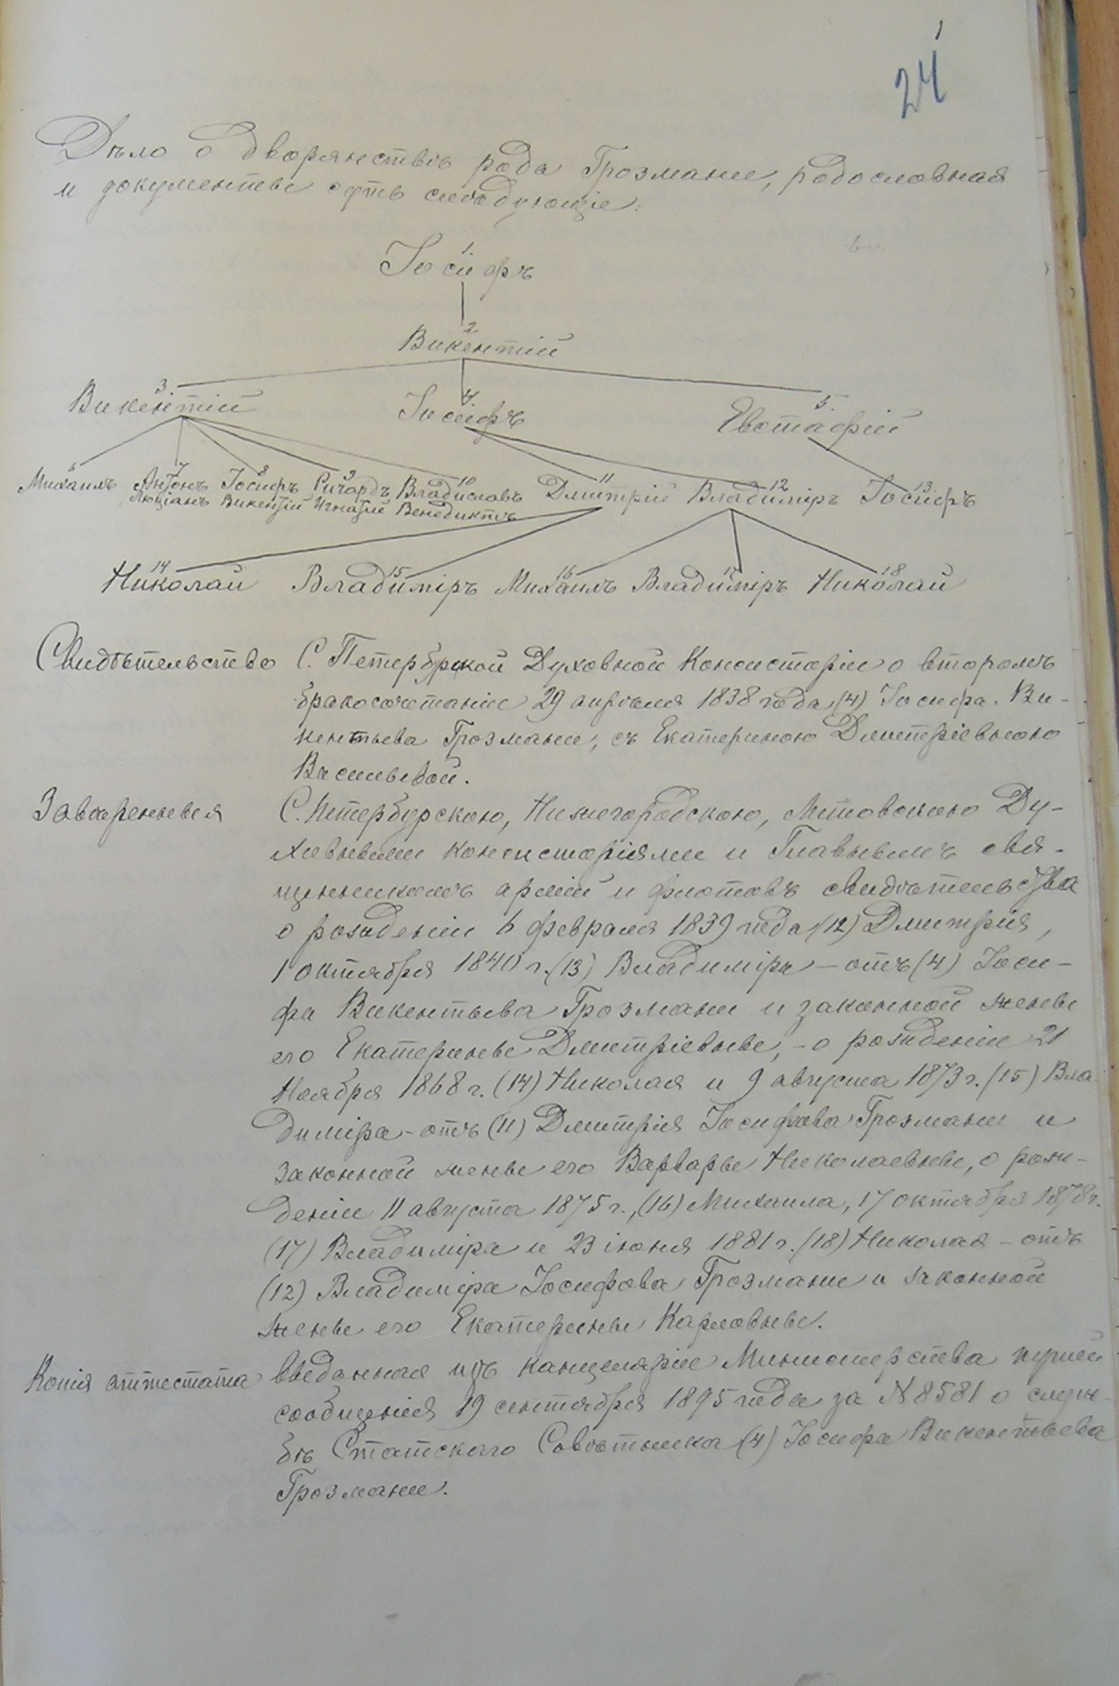 24
Дѣло о дворянствѣ рода Грозмани, родословная
и документы суть слѣдующіе:
1
Іосифъ
2
Викентій
3 4 5
Викентій Іосифъ Евстафій
6 7 8 9 10 11 12 13
Михаилъ Антонъ Іосифъ Ричардъ Владиславъ Дмитрій Владиміръ Іосифъ
Люціанъ Викентій Игнатій Венедиктъ
14 15 16 17 18
Николай Владиміръ Михаилъ Владиміръ Николай
Свидѣтельство С. Петербрской Духовной Консисторіи о второмъ
бракосочетаніи 29 апрѣля 1838 года (4) Іосифа Ви-
кентьева Грозмани, съ Екатериною Дмитріевною
Васильевой.
Завѣренныя С. Петербурскою, Нижегородскою, Литовскою Ду-
ховными консисторіями и Главнымъ свя-
щенникомъ арміи и флотовъ свидѣтельства
о рожденіи 6 февраля 1839 года (12) Дмитрія,
1 октября 1840 г. (13) Владиміра – отъ (4) Іоси-
фа Викентьева Грозмани и законной жены
его Екатерины Дмитріевны, – о рожденіи 21
Ноября 1868 г. (14) Николая и 9 августа 1873 г. (15) Вла-
диміра – отъ (11) Дмитрія Іосифова Грозмани и
законной жены его Варвары Николаевны, о рож-
деніи 11 августа 1875 г., (16) Михаила, 17 октября 1878 г.
(17) Владиміра и 23 іюня 1881 г. (18) Николая – отъ
(12) Владиміра Іосифова Грозмани и законной
жены его Екатерины Карловны.
Копія аттестата выданная изъ канцеляріи Министерства путей
сообщенія 19 сентября 1895 года за N 8581 о служ-
бѣ Статскаго Совѣтника (4) Іосифа Викентьева
Грозмани.